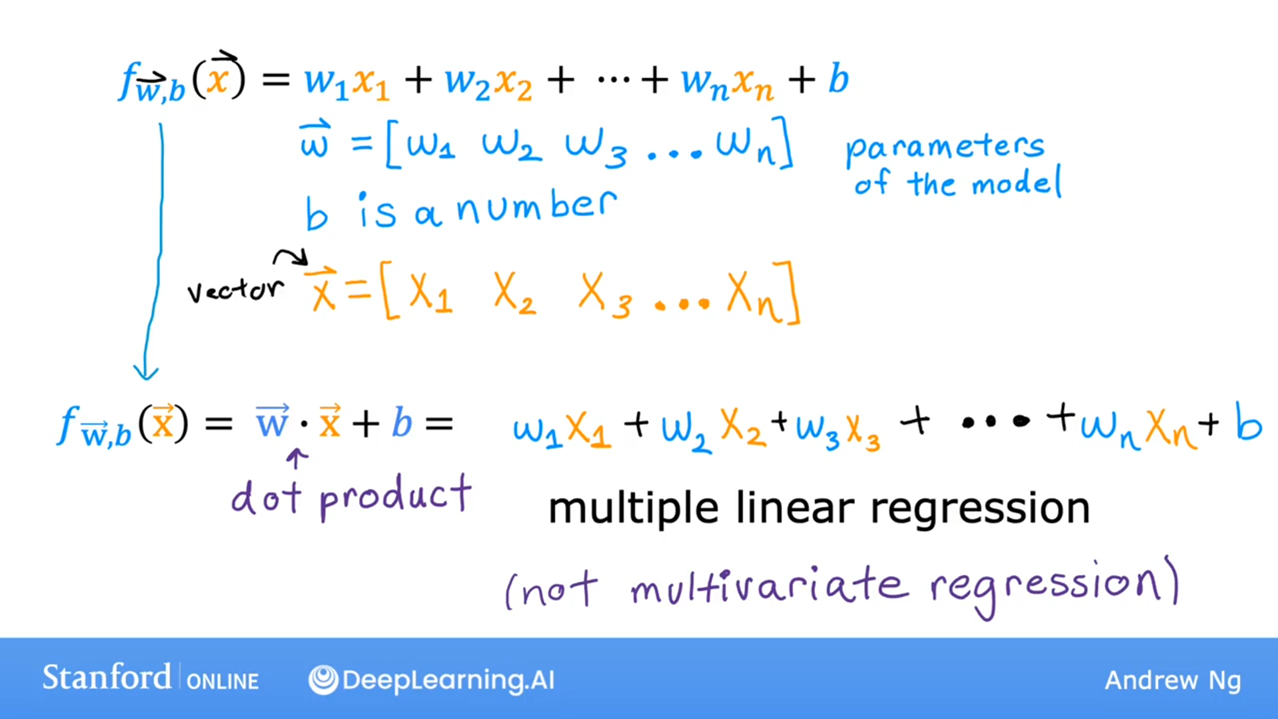 f_{w⃗,b}(x⃗) = w₁x₁ + w₂x₂ + ⋯ + wₙxₙ + b
w⃗ = [w₁ w₂ w₃ ... wₙ]
parameters
of the model
b is a number
vector x⃗ = [x₁ x₂ x₃ ... xₙ]
f_{w⃗,b}(x⃗) = w⃗ · x⃗ + b = w₁x₁ + w₂x₂ + w₃x₃ + ... + wₙxₙ + b
dot product
multiple linear regression
(not multivariate regression)
Stanford | ONLINE DeepLearning.AI Andrew Ng